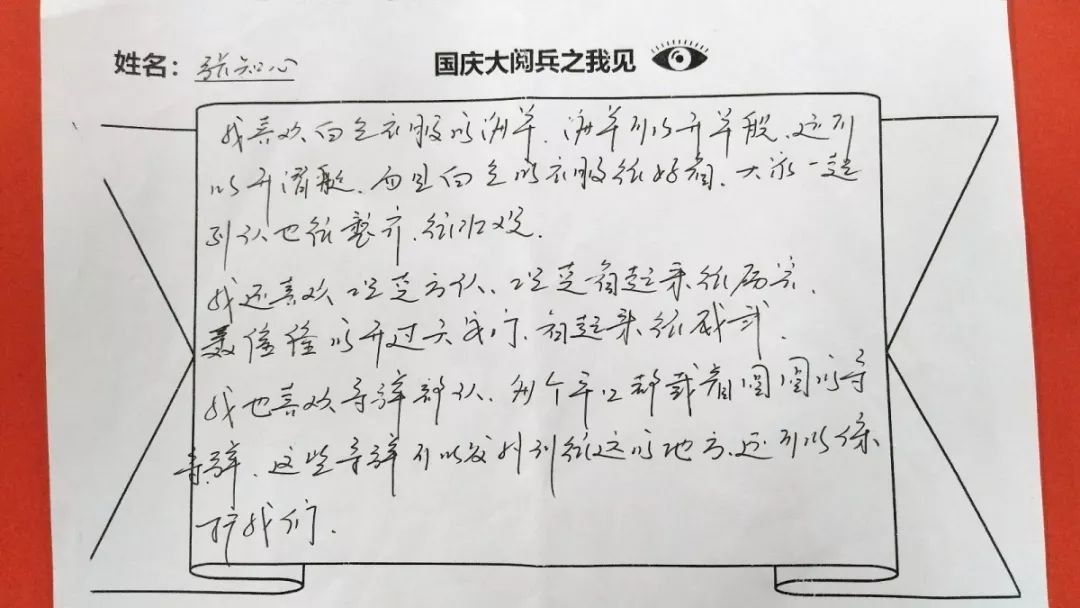 姓名：张知心
国庆大阅兵之我见
我喜欢白色衣服的海军，海军可以开军舰，还可
以开潜艇，而且白色的衣服很好看，大家一起
列队也很整齐，很壮观。
我还喜欢坦克方队，坦克看起来很厉害，
轰隆隆的开过天安门，看起来很威武。
我也喜欢导弹部队，每个车上都载着圆圆的导
导弹，这些导弹可以发射到很远的地方，还可以保
护我们。